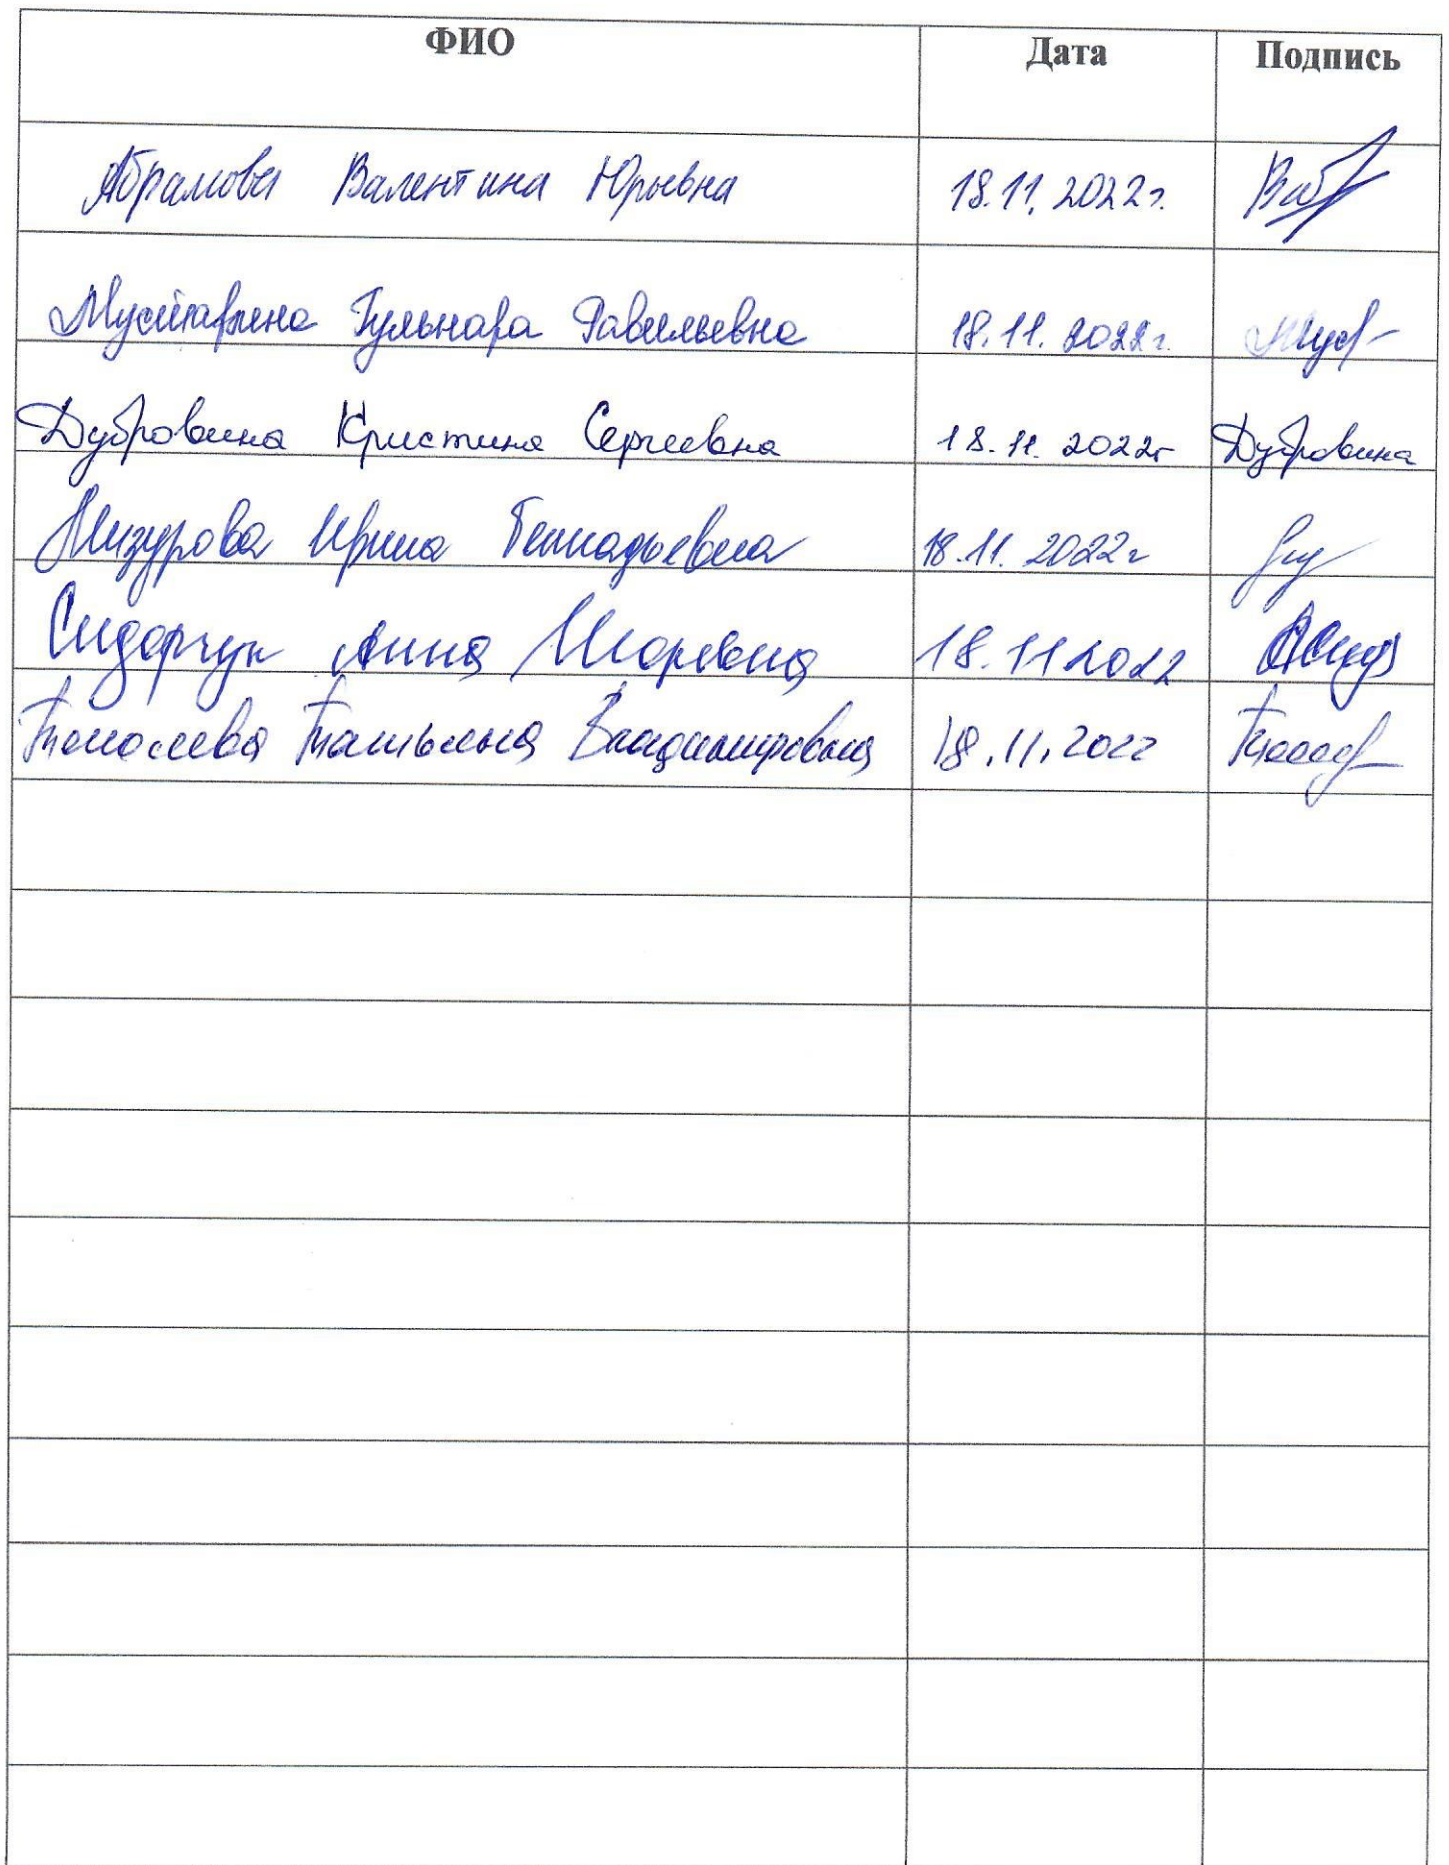 ФИО Дата Подпись
Абрамова Валентина Юрьевна 18.11.2022г.
Гульнара Равильевна 18.11.2022г.
Дубровина Кристина Сергеевна 18.11.2022г Дубровина
Мизурова Ирина Геннадьевна 18.11.2022г
Сидорчук Анна Игоревна 18.11.2022
Татьяна Владимировна 18.11.2022